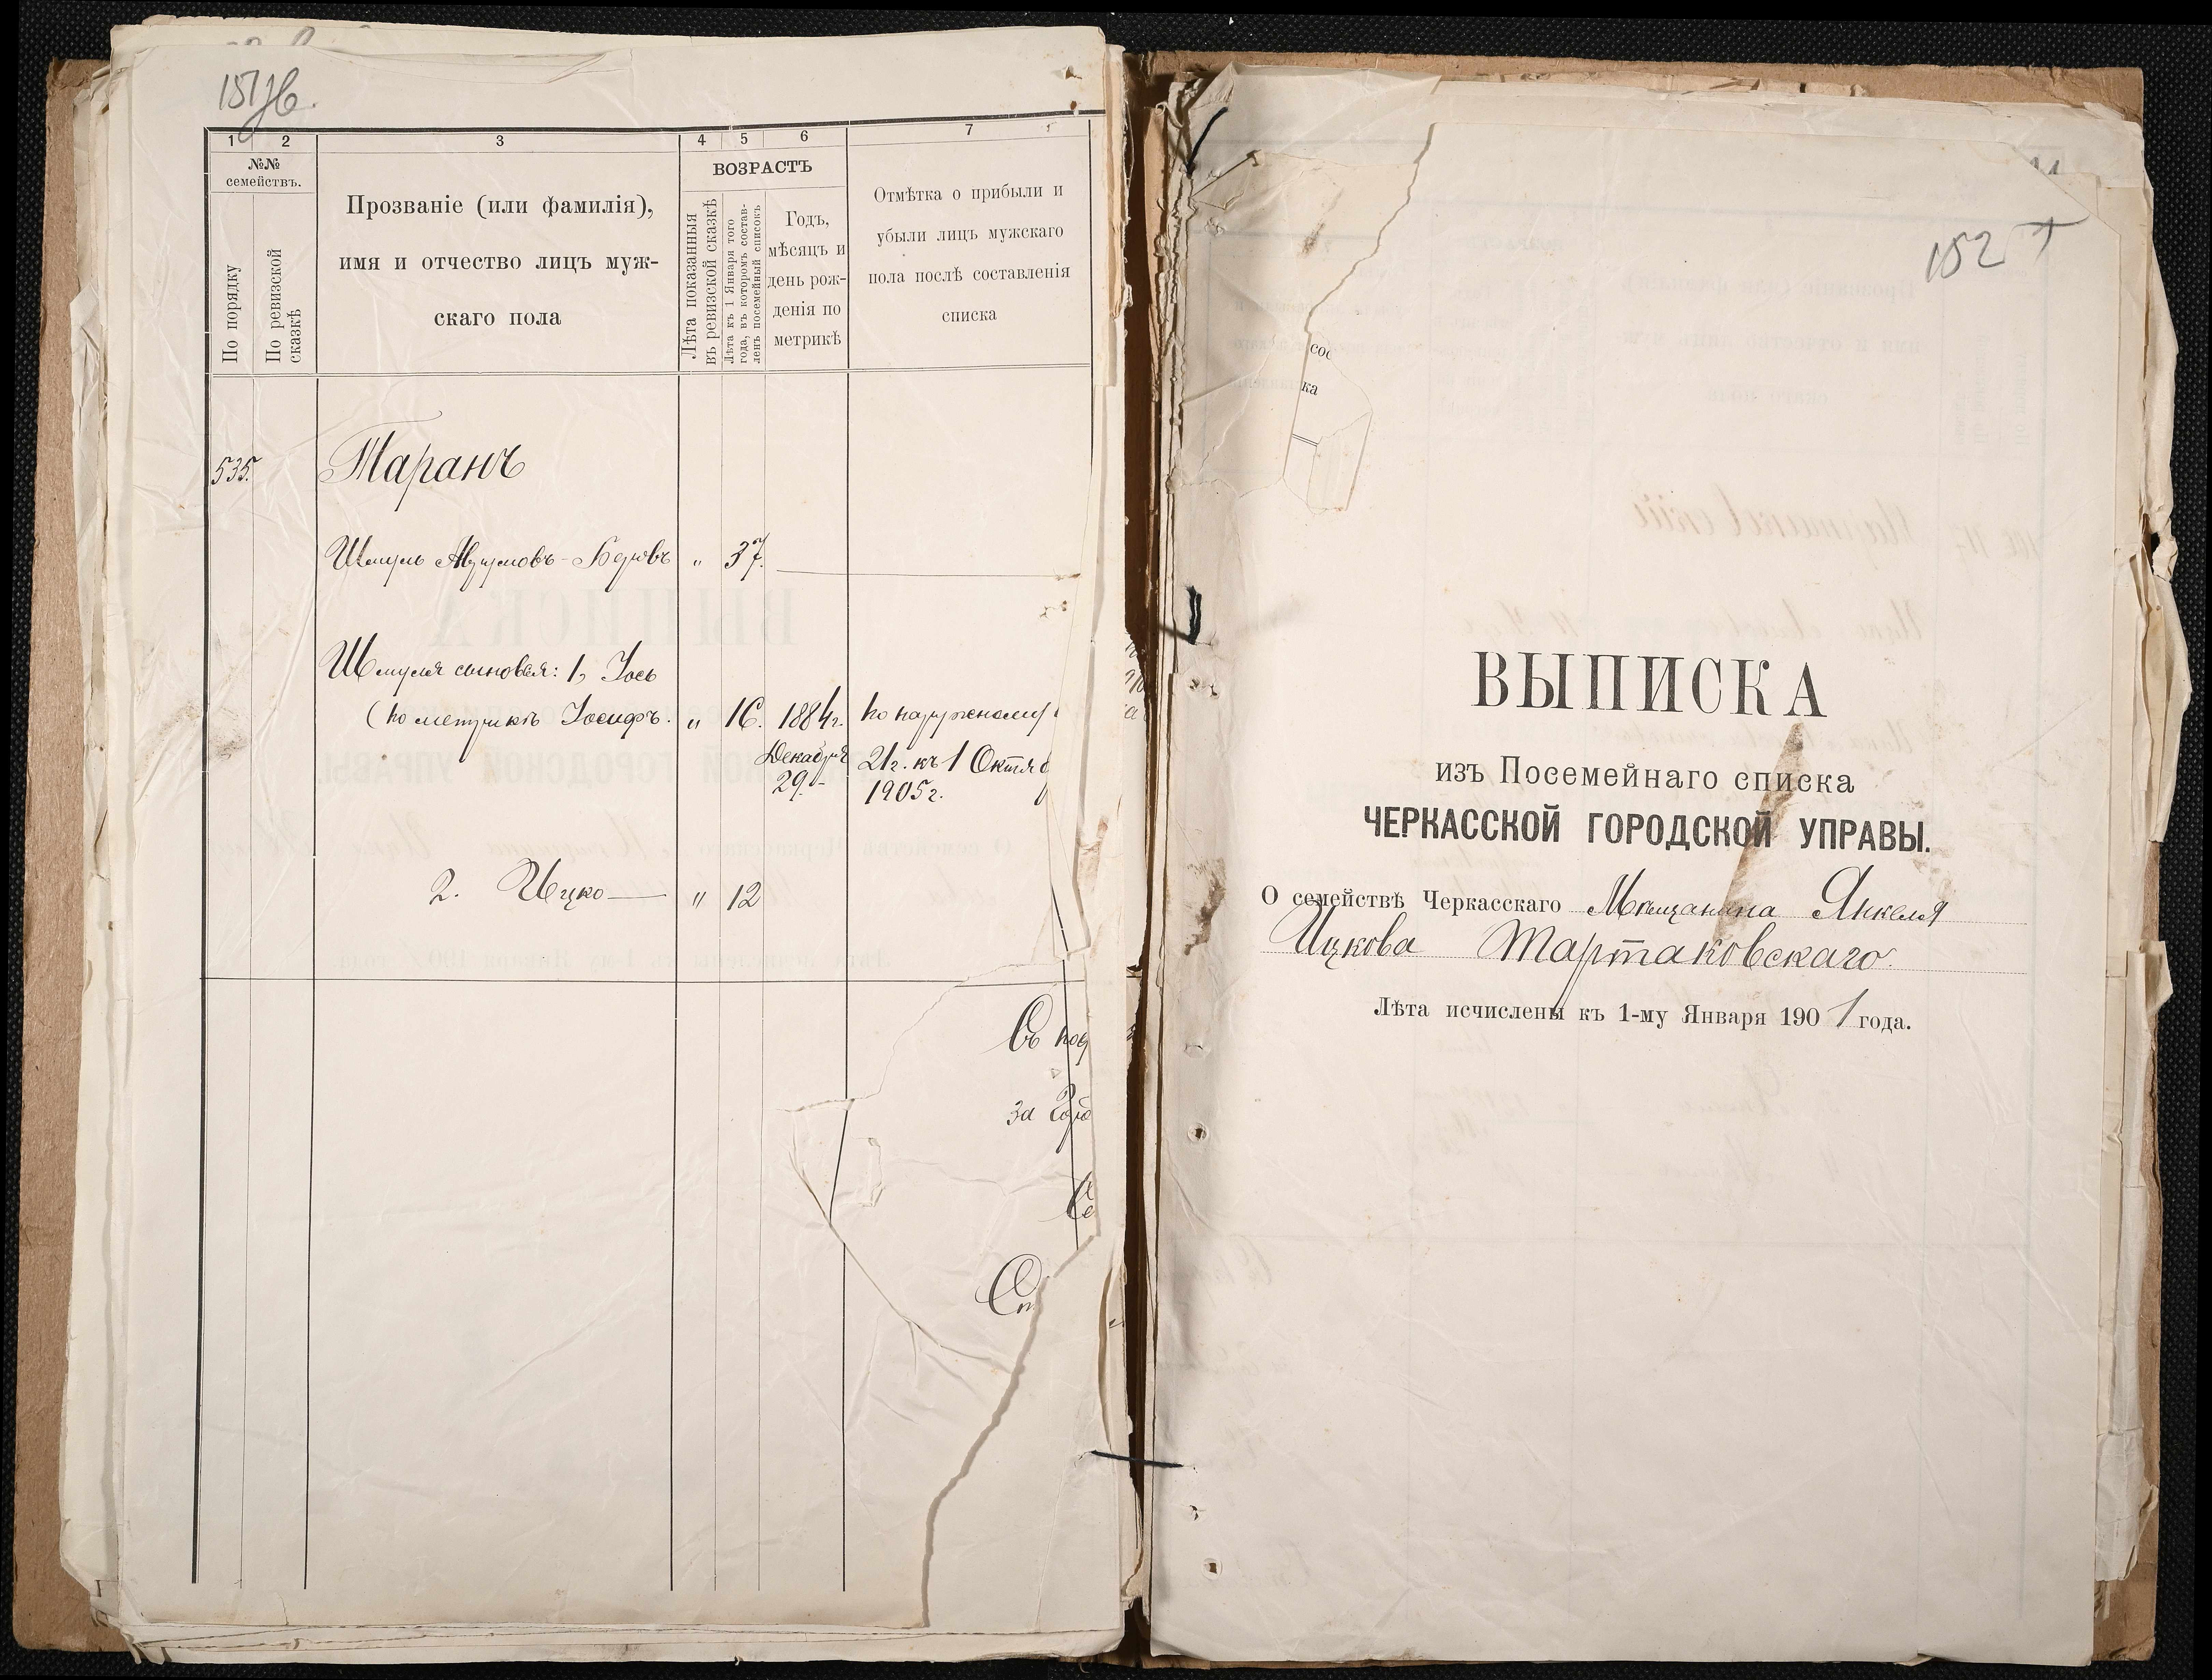 151
1 2 3 4 5 6 7
№№ семействъ.
По порядку
По ревизской сказкѣ
Прозваніе (или фамилія),
имя и отчество лицъ муж-
скаго пола
ВОЗРАСТЪ
Лѣта показанныя
въ ревизской сказкѣ
Лѣта къ 1 Января того
года, въ которомъ состав-
ленъ посемейный списокъ
Годъ,
мѣсяцъ и
день рож-
денія по
метрикѣ
Отмѣтка о прибыли и
убыли лицъ мужскаго
пола послѣ составленія
списка
535. Таранъ
Шмуль " 37.
Шмуля сыновья: 1, Іось
(по метрикѣ Іосифъ. " 16. 1884г. по наружному
Декабря 21г. къ 1 Октяб
29. 1905г.
2. Ицко " 12
Съ под
за Горо
Се
152
сос
ка
ВЫПИСКА
изъ Посемейнаго списка
ЧЕРКАССКОЙ ГОРОДСКОЙ УПРАВЫ.
О семействѣ Черкасскаго Мѣщанина Янкеля
Ицкова Тартаковскаго.
Лѣта исчислены къ 1-му Января 1901 года.